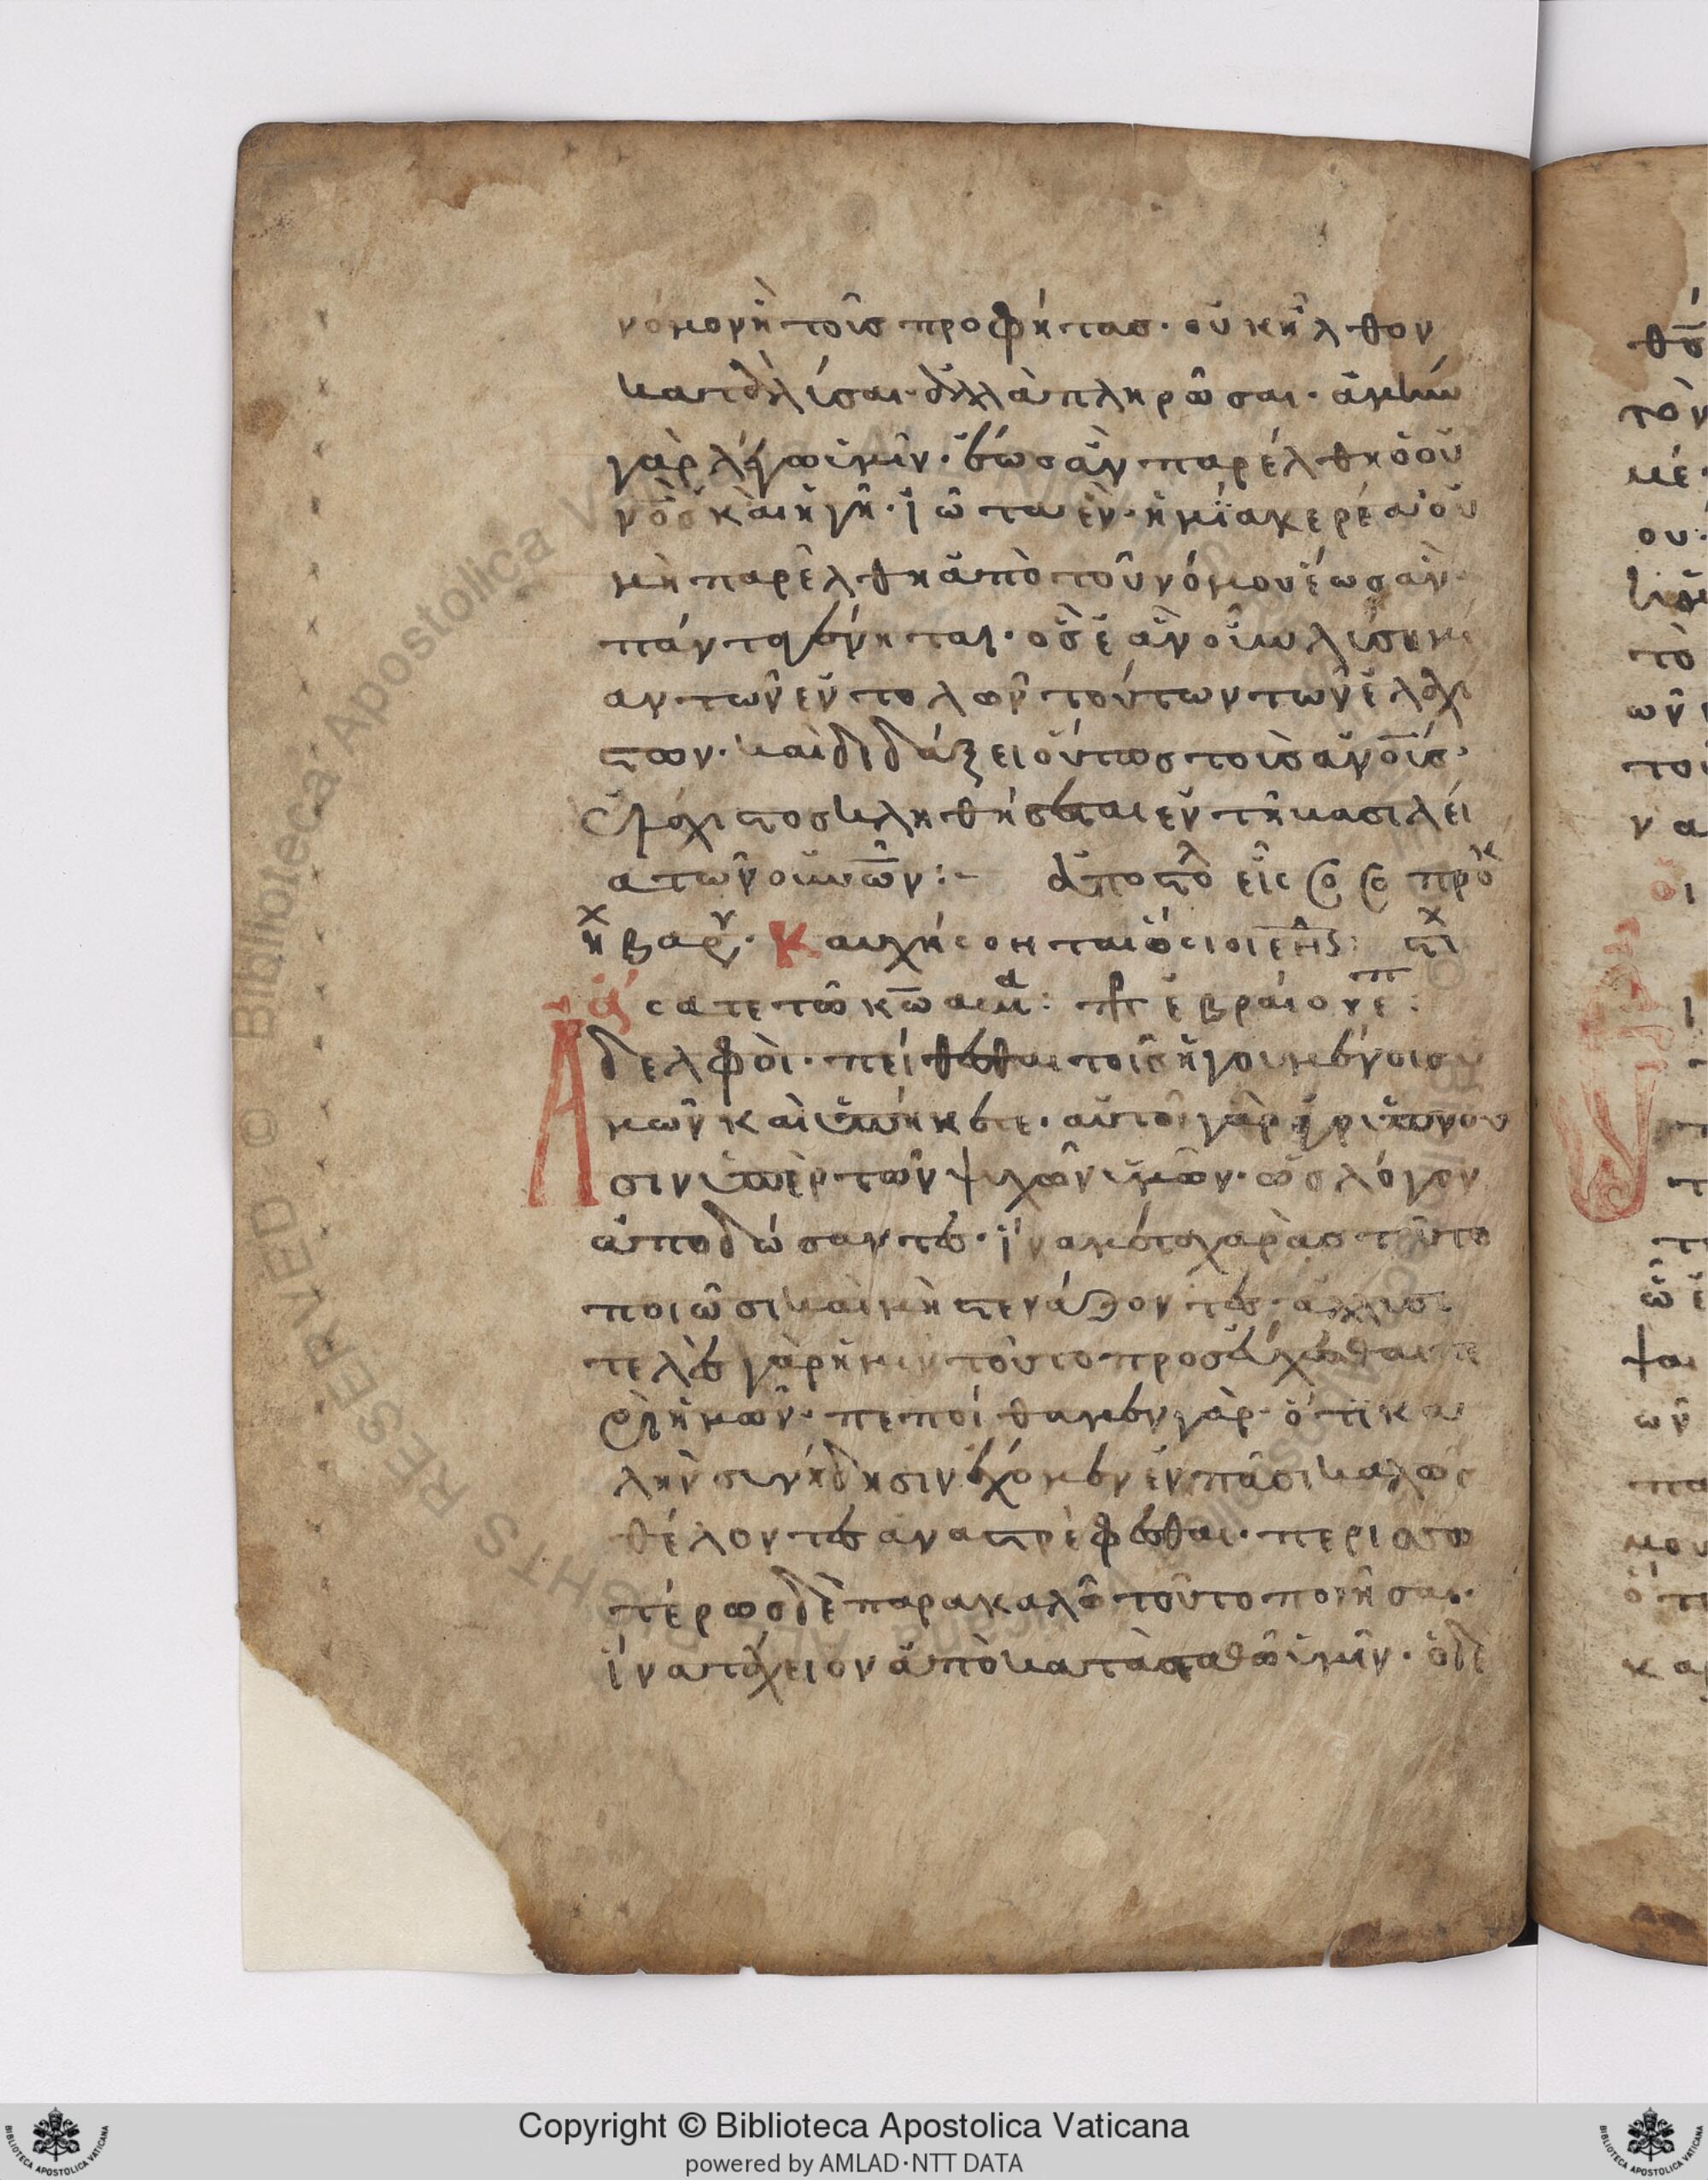 νόμον ἢ τοῖς προφήτας· οὐκ ἦλθον
καταλίσαι· ἀλλὰ πληρῶσαι· ἀμὴν
γὰρ λέγω ὑμῖν· ἕως ἂν παρέλθη ὁ οὐ
νὸς καὶ ἡ γῆ· ἰῶτα ἓν· ἢ μία κερέα οὐ
μὴ παρέλθη ἀπὸ τοῦ νόμου ἕως ἂν
πάντα γένηται· ὃς ἐὰν οὖν λύση μί
αν τῶν ἐντολῶν τούτων τῶν ἐλαχί
στων· καὶ διδάξει οὕτως τοὺς ἀν̅ο̅ις·
ἐλάχιστος κληθήσεται ἐν τῆ βασιλεί
α τῶν οὐν̅ω̅ν:- ἀποστολ εἰς
η βαρ· Καυχήσονται ὅσιοι ἐν στι
σατε τῶ κ̅ω̅ ασμα: πρ ἑβραίους:
Ἀδελφοὶ· πείθεσθαι τοῖς ἡγουμένοις ὑ
μῶν καὶ ὑπήκετε· αὐτοὶ γὰρ ἀγρυπνοῦ
σιν ὑπὲρ τῶν ψυχῶν ὑμῶν· ὡς λόγον
ἀποδώσαντες· ἵνα μετα χαρὰς τοῦτο
ποιῶσι καὶ μὴ στενάζοντες· ἀλυσι
τελὲς γὰρ ἡμῖν τοῦτο προσεύχεσθαι πε
ρὶ ἡμῶν· πεποίθαμεν γὰρ· ὅτι κα
λὴν συνήδησιν ἔχομεν ἐν πᾶσι καλῶς
θέλοντες ἀναστρέφεσθαι· περισσο
τέρως δὲ παρακαλῶ τοῦτο ποιῆσαι·
ἵνα τάχειον ἀποκατασταθῶ ὑμῖν· ὁ δὲ
Copyright © Biblioteca Apostolica Vaticana
powered by AMLAD·NTT DATA